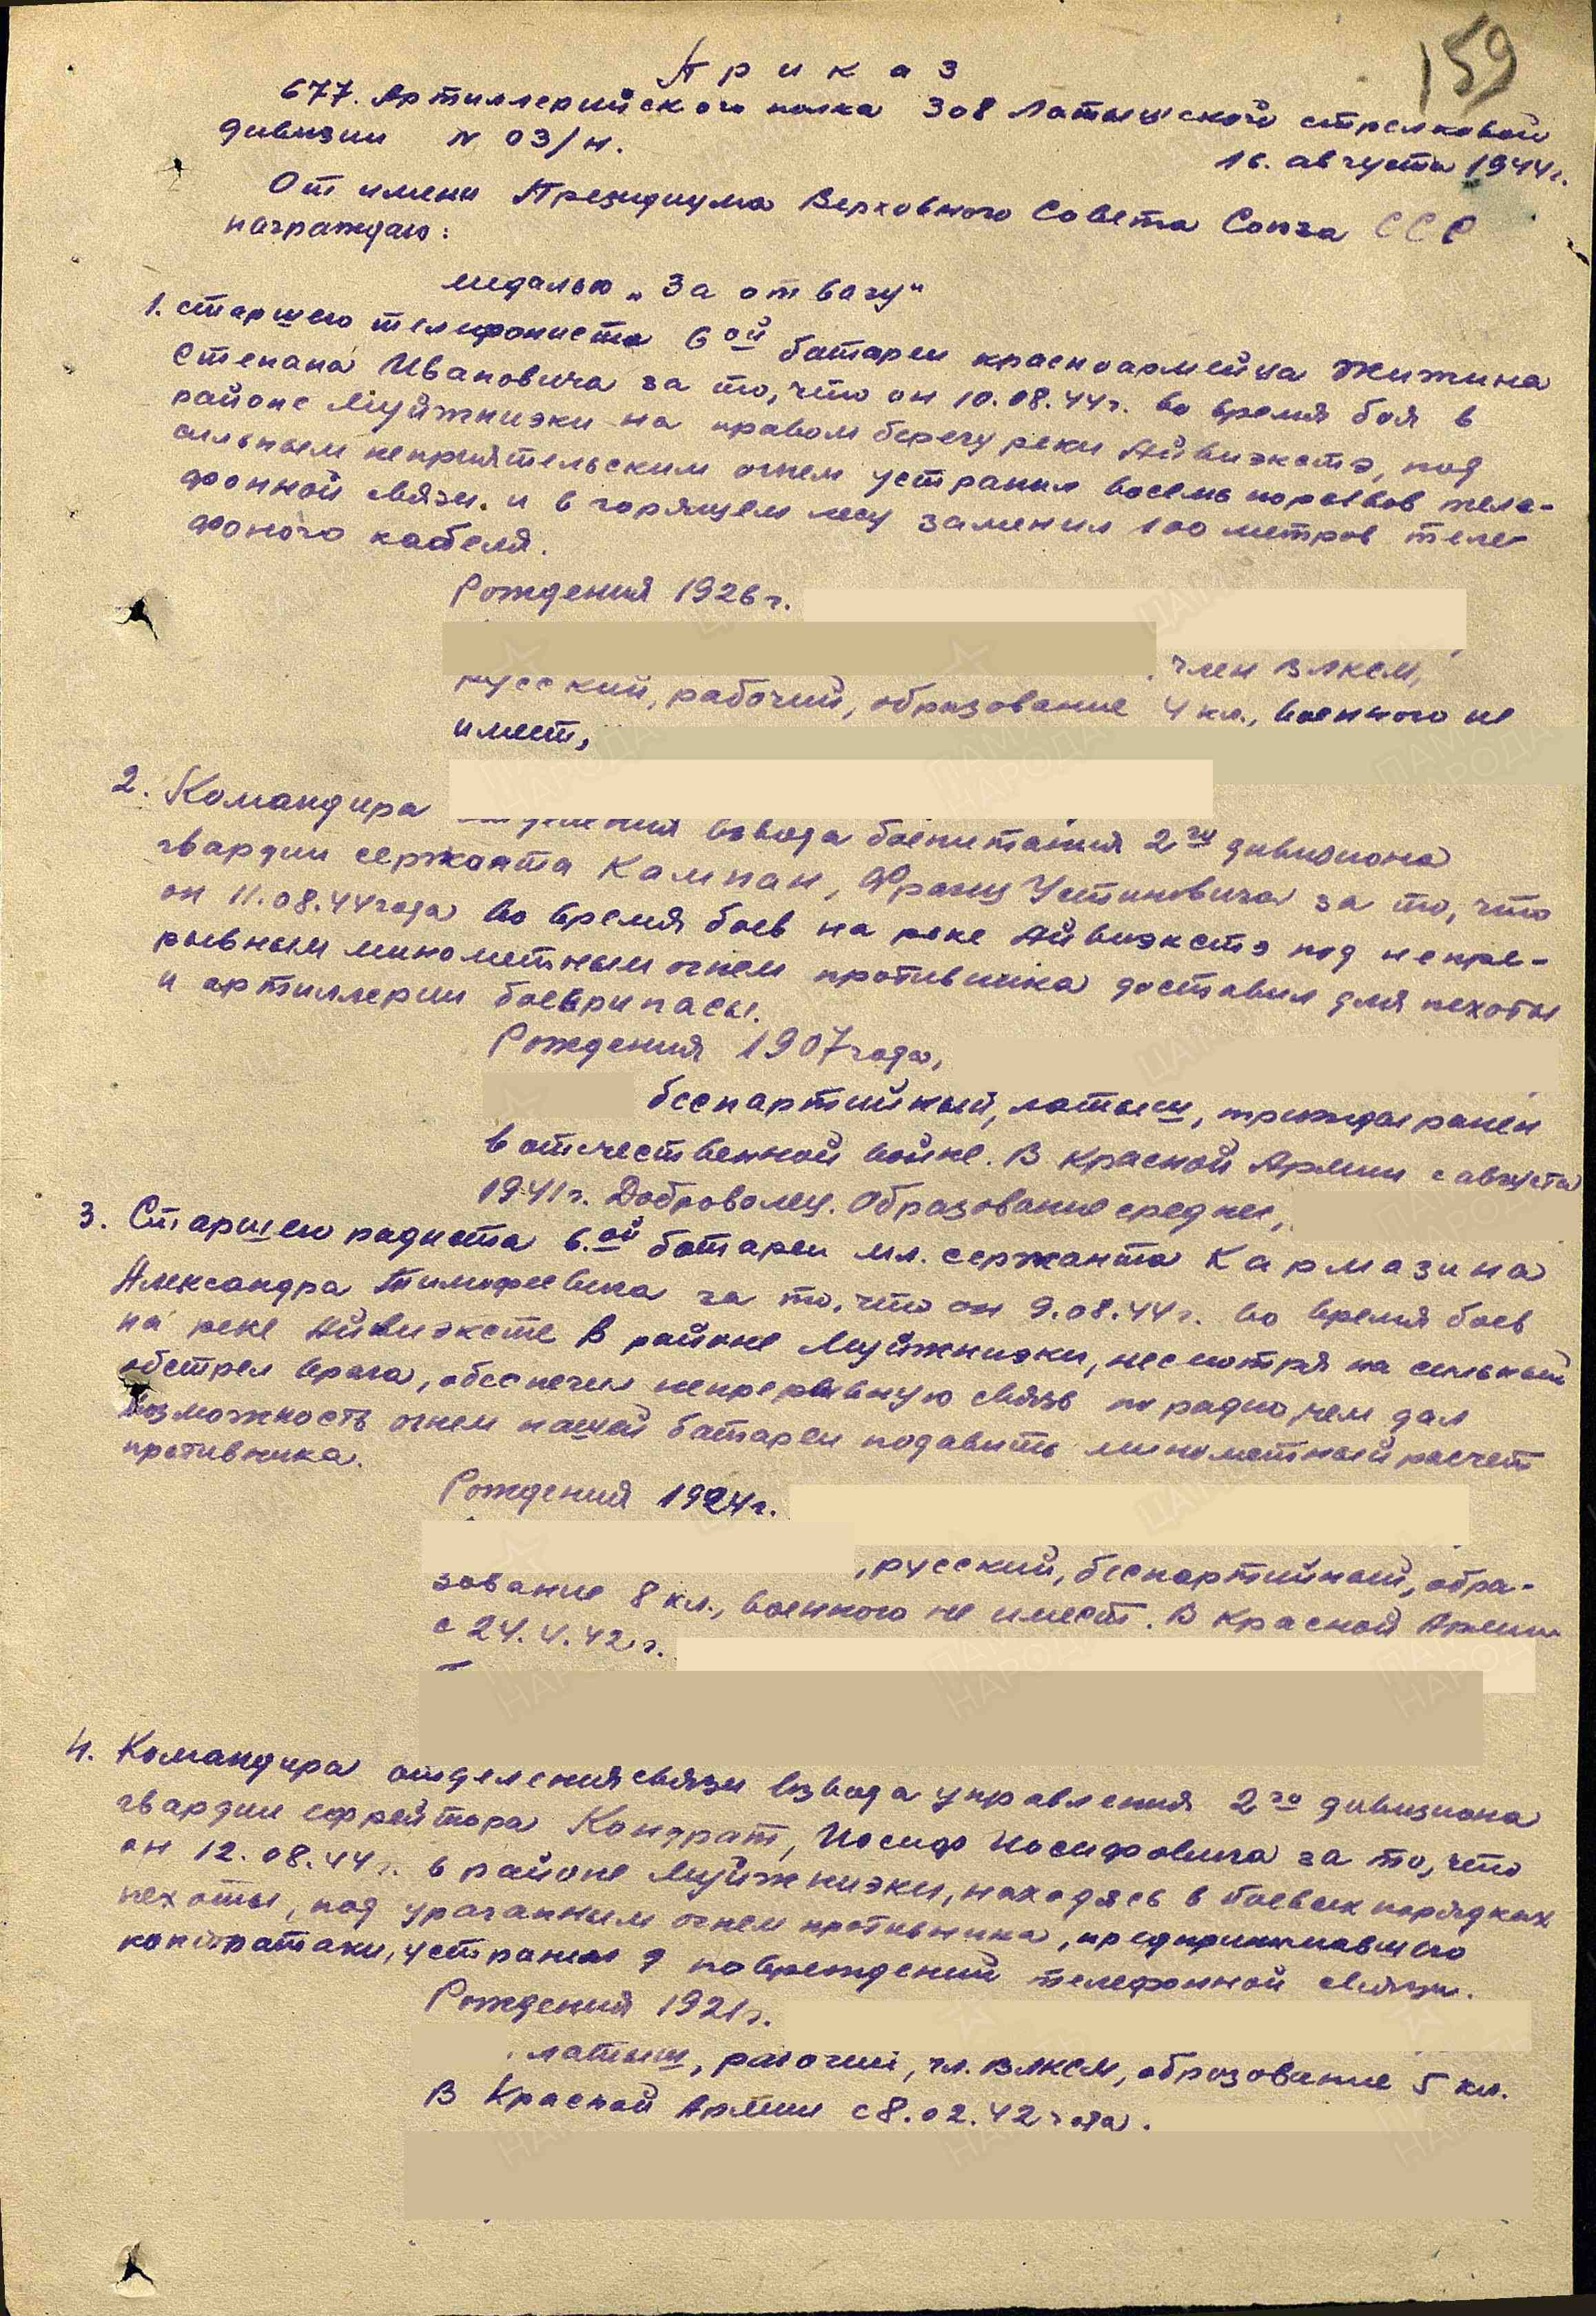 159
Приказ
677. Артиллерийского полка 308 Латышской стрелковой
дивизии N 03/н.
16. августа 1944г.
От имени Президиума Верховного Совета Союза ССР
награждаю:
медалью „За отвагу“
1. старшего телефониста 6ой батареи красноармейца Жижина
Степана Ивановича за то, что он 10.08.44г. во время боя в
районе Муйжниэки на правом берегу реки Айвиэкстэ, под
сильным неприятельским огнем устранил восемь порывов теле-
фонной связи. и в горящем лесу заменил 100 метров теле-
фоного кабеля.
Рождения 1926г.
член ВЛКСМ,
русский, рабочий, образование 4 кл., военного не
имеет,
2. Командира отделения взвода боепитания 2го дивизиона
гвардии сержанта Кампан, Франц Устиновича за то, что
он 11.08.44 года во время боев на реке Айвиэкстэ под непре-
рывным минометным огнем противника доставил для пехоты
и артиллерии боеприпасы.
Рождения 1907 года,
беспартийный, латыш, трижды ранен
в отечественной войне. В Красной Армии с августа
1941г. Доброволец. Образование среднее,
3. Старшего радиста 6.ой батареи мл. сержанта Кармазина
Александра Тимофеевича за то, что он 9.08.44г. во время боев
на реке Айвиэксте в районе Муйжниэки, несмотря на сильный
обстрел врага, обеспечил непрерывную связь по радио, чем дал
возможность огнем нашей батареи подавить минометный расчет
противника.
Рождения 1924г.
, русский, беспартийный, обра-
зование 8 кл., военного не имеет. В Красной Армии
с 24.4.42г.
4. Командира отделения связи взвода управления 2го дивизиона
гвардии ефрейтора Кондрат, Иосиф Иосифовича за то, что
он 12.08.44г. в районе Муйжниэки, находясь в боевых порядках
пехоты, под ураганным огнем противника, предпринимавшего
контратаки, устранил 9 повреждений телефонной связи.
Рождения 1921г.
, латыш, рабочий, чл. ВЛКСМ, образование 5 кл.
В Красной Армии с 8.02.42 года.